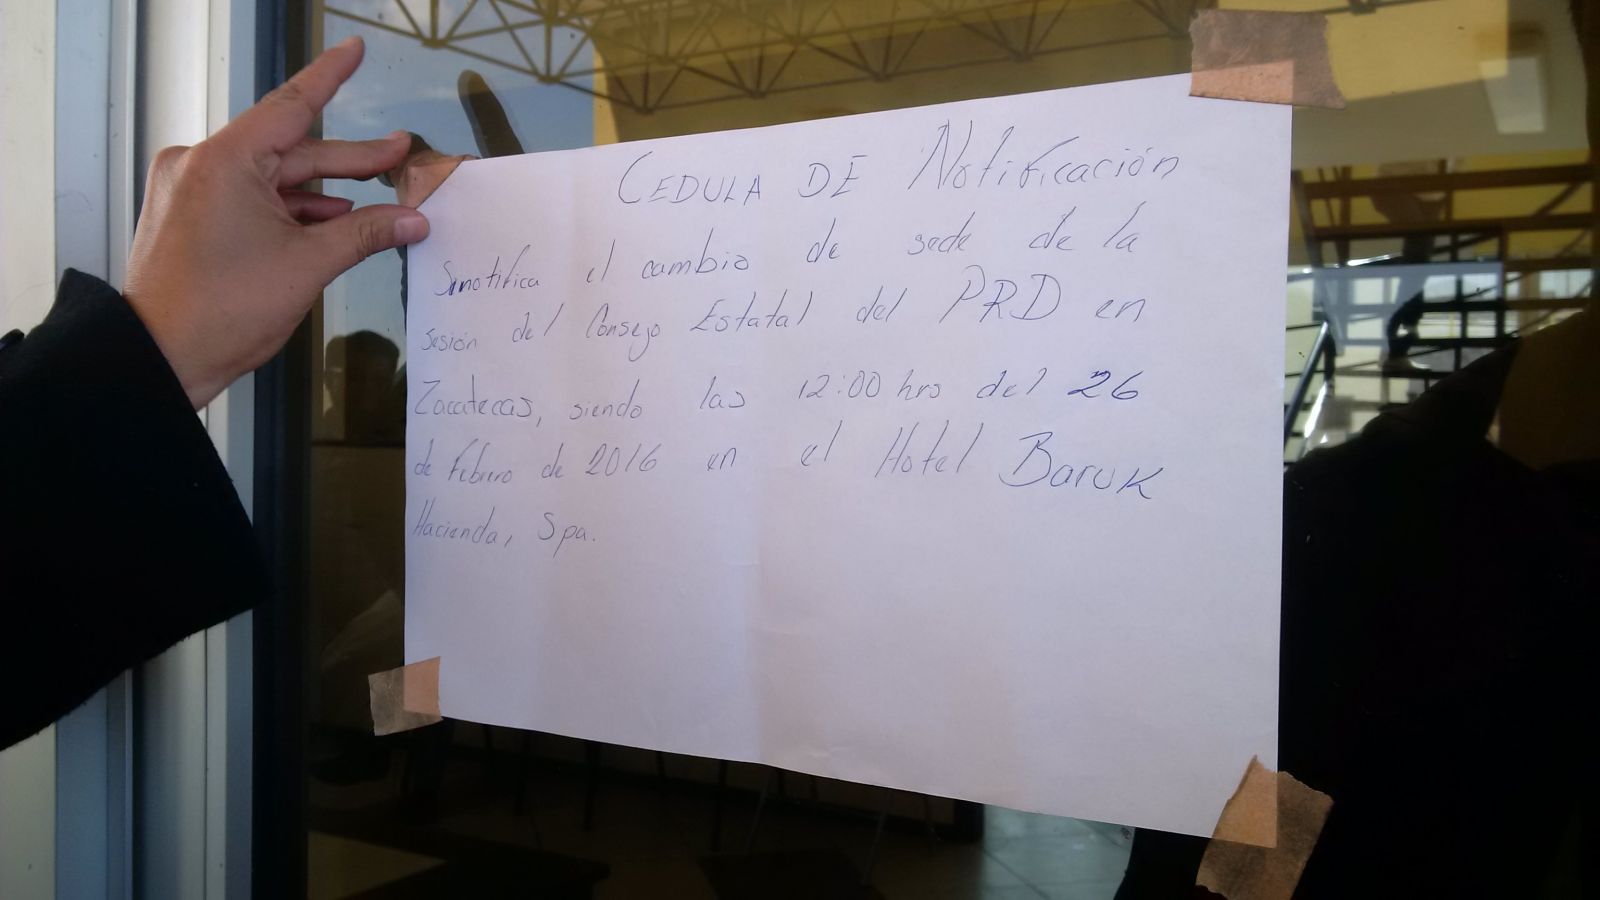 CEDULA DE Notificación
Se notifica el cambio de sede de la
sesión del Consejo Estatal del PRD en
Zacatecas, siendo las 12:00 hrs del 26
de Febrero de 2016 en el Hotel Baruk
Hacienda, Spa.